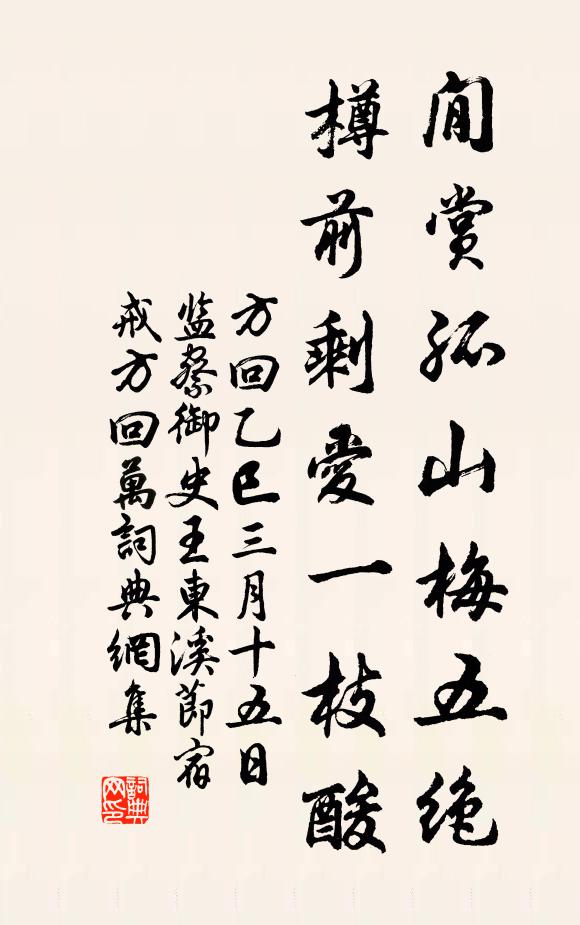 閒賞孤山梅五絶
樽前剩愛一枝酸
方回乙巳三月十五日
监察御史王東溪節宿
戒方回萬詞典網集
詞典网印